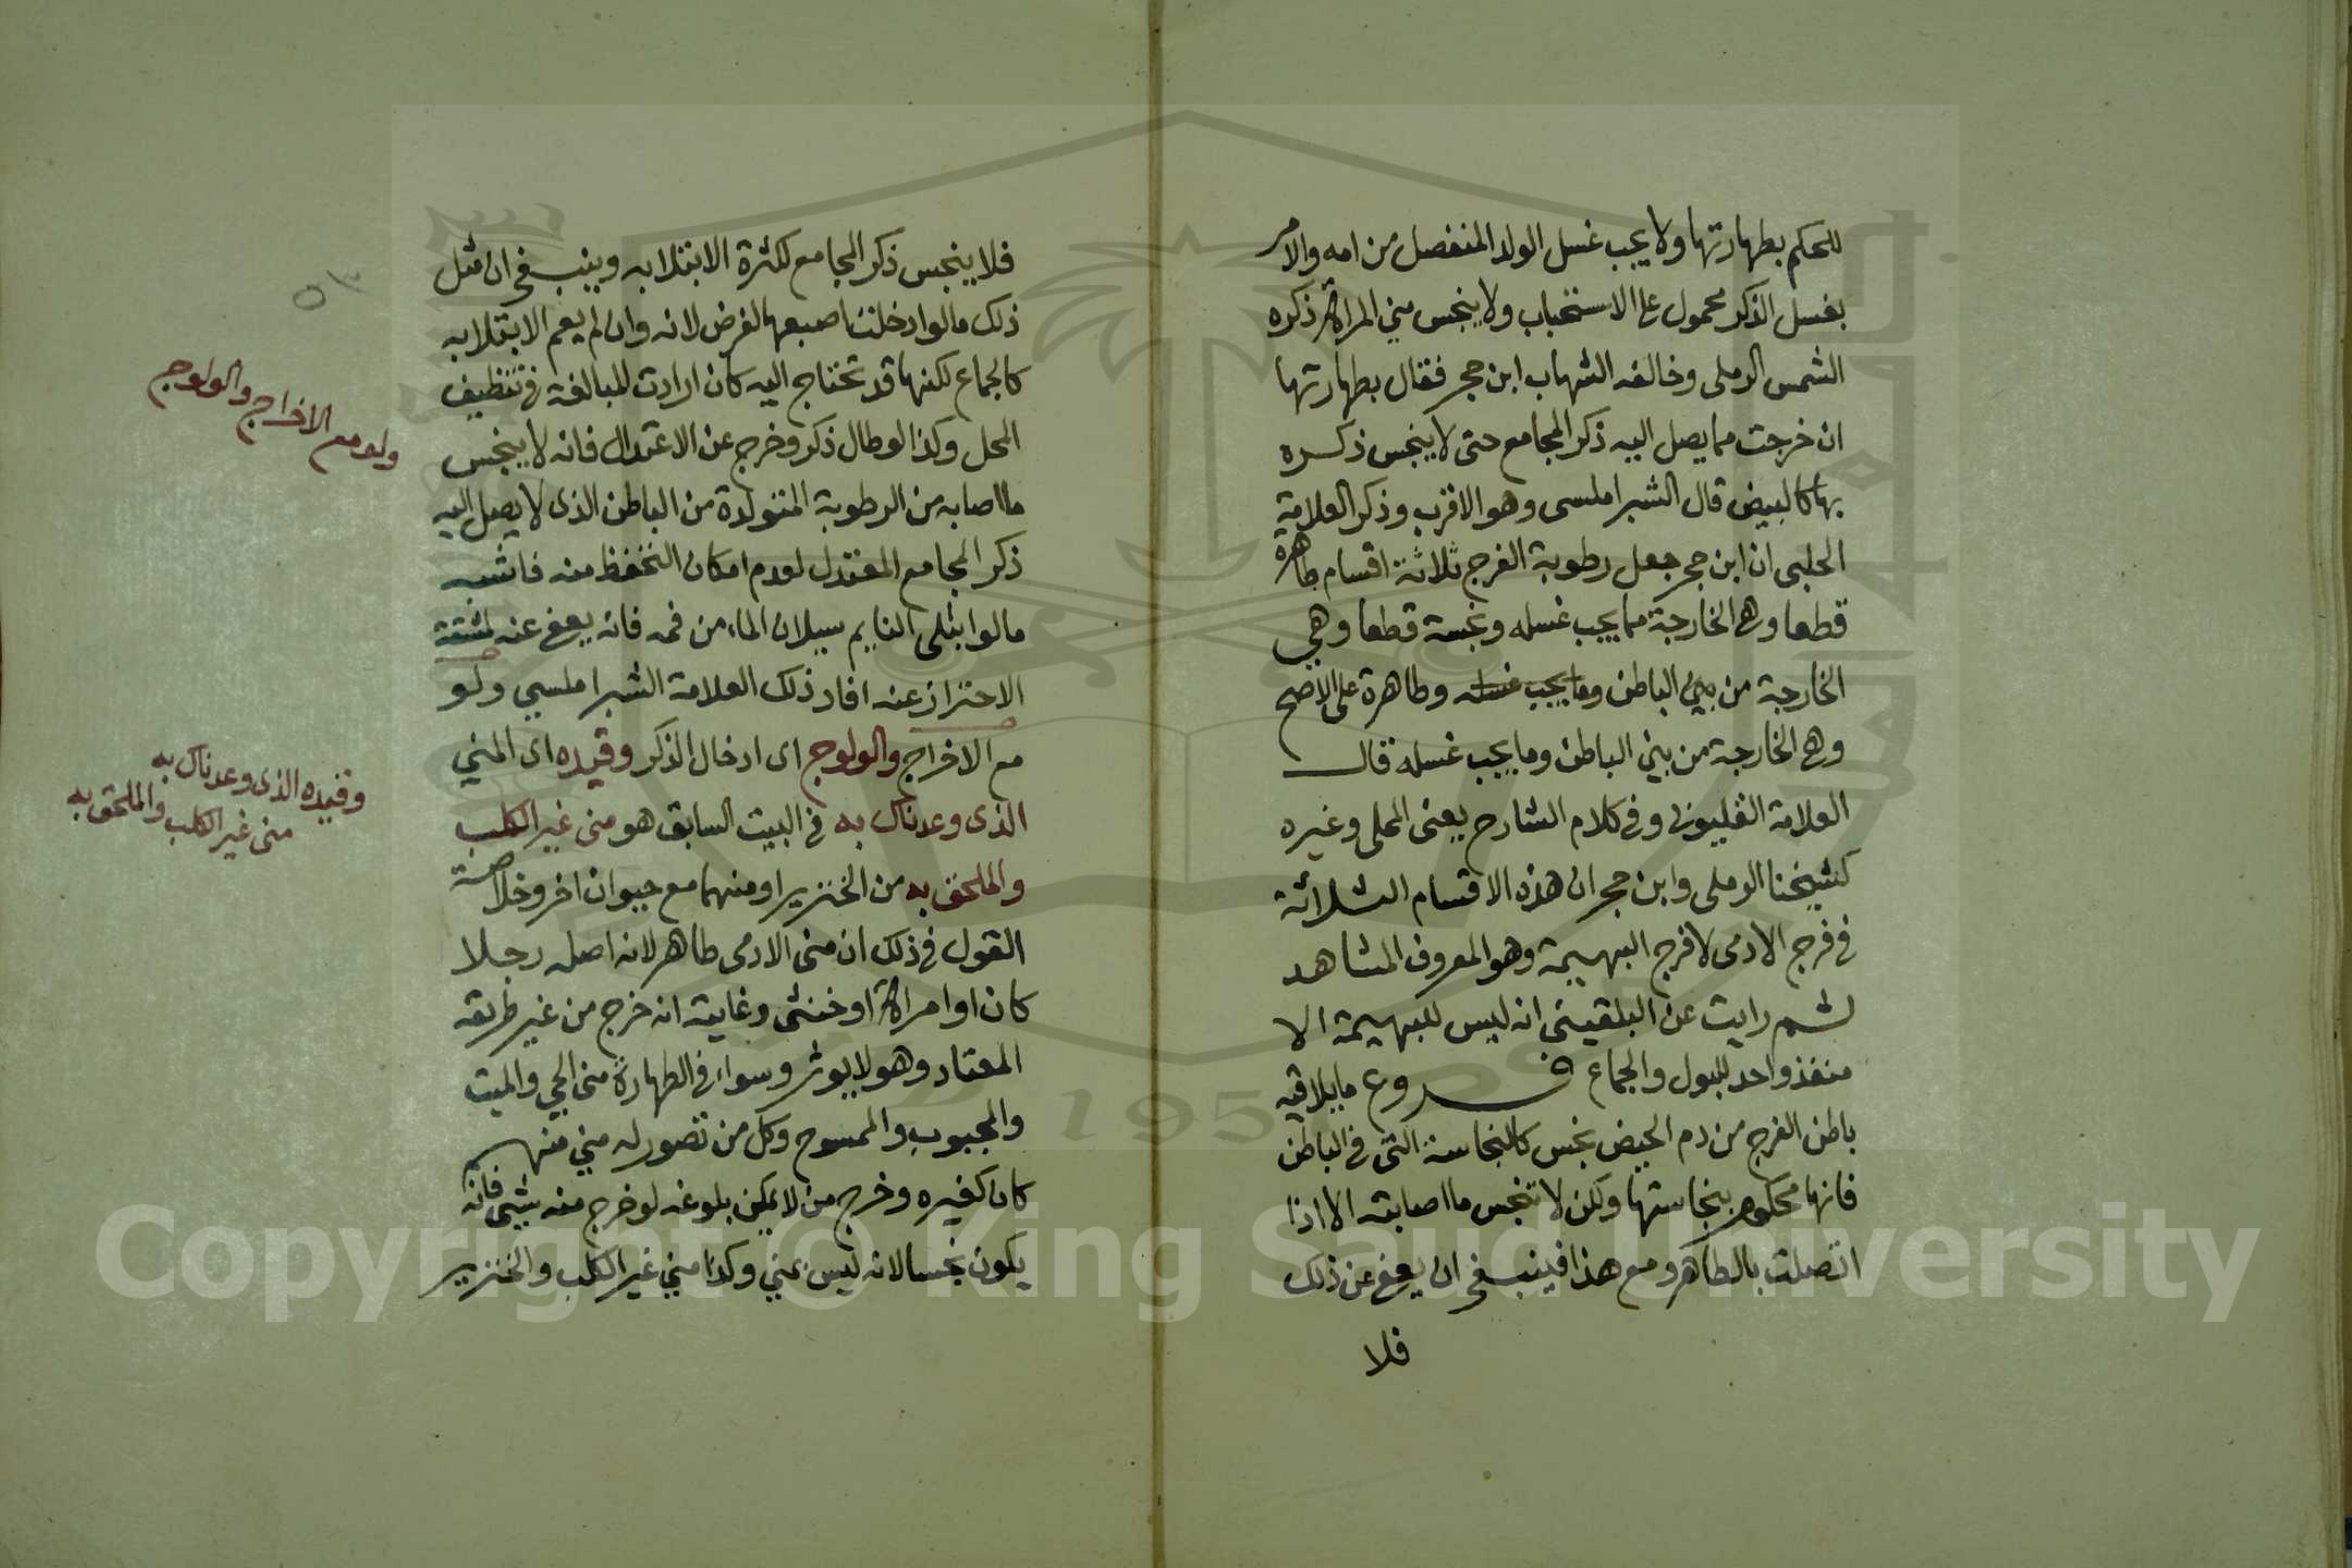 للحكم بطهارتها ولا يجب غسل الولد المنفصل من امه والامر
بغسل الذكر محمول على الاستحباب ولا ينجس مني المراة ذكره
الشمس الرملى وخالفه الشهاب ابن حجر فقال بطهارتها
ان خرجت مما يصل اليه ذكر المجامع حتى لا ينجس ذكره
بها كالبيض قال الشبراملسى وهو الاقرب وذكر العلامة
الحلبى ان ابن حجر جعل رطوبة الفرج ثلاثة اقسام طاهرة
قطعا وهى الخارجة مما يجب غسله ونجسة قطعا وهي
الخارجة من بين الباطن وما يجب غسله وطاهرة على الاصح
وهى الخارجة من بين الباطن وما يجب غسله قال
العلامة القليوبى وفى كلام الشارح يعنى المحلى وغيره
كشيخنا الرملى وابن حجر ان هذه الاقسام الثلاثة
فى فرج الادمى لا فرج البهيمة وهو المعروف المشاهد
ثم رايت عن البلقينى انه ليس للبهيمة الا
منفذ واحد للبول والجماع فروع ما يلاقيه
باطن الفرج من دم الحيض نجس كالنجاسة التى فى الباطن
فانها محكوم بنجاستها ولكن لا تنجس ما اصابته الا اذا
اتصلت بالظاهر ومع هذا فينبغى ان يعفى عن ذلك
فلا
فلا ينجس ذكر المجامع لكثرة الابتلا به وينبغى ان مثل
ذلك ما لو ادخلت اصبعها لغرض لانه وان لم يعم الابتلا به
كالجماع لكنها قد تحتاج اليه كان ارادت المبالغة فى تنظيف
المحل وكذا لو طال ذكر وخرج عن الاعتدال فانه لا ينجس
ما اصابه من الرطوبة المتولدة من الباطن الذى لا يصل اليه
ذكر المجامع المعتدل لعدم امكان التحفظ منه فاشبه
ما لو ابتلى النايم بسيلان الماء من فمه فانه يعفى عنه لمشقة
الاحتراز عنه افاد ذلك العلامة الشبراملسي ولو
مع الاخراج والولوج اى ادخال الذكر وقيده اى المني
الذى وعدناك به فى البيت السابق هو منى غير الكلب
والملحق به من الخنزير او منهما مع حيوان اخر وخلاصة
القول فى ذلك ان منى الادمى طاهر لانه اصله رجلا
كان او امراة او خنثى وغايته انه خرج من غير طريقه
المعتاد وهو لا يوثر وسواء فى الطهارة منى الحي والميت
والمجبوب والممسوح وكل من تصور له مني منهم
كان كغيره وخرج من لا يمكن بلوغه لو خرج منه شى فانه
يكون نجسا لانه ليس بمني وكذا مني غير الكلب والخنزير
ولو مع الاخراج والولوج
وقيده الذى وعدناك به
منى غير الكلب والملحق به
Copyright © King Saud University
195